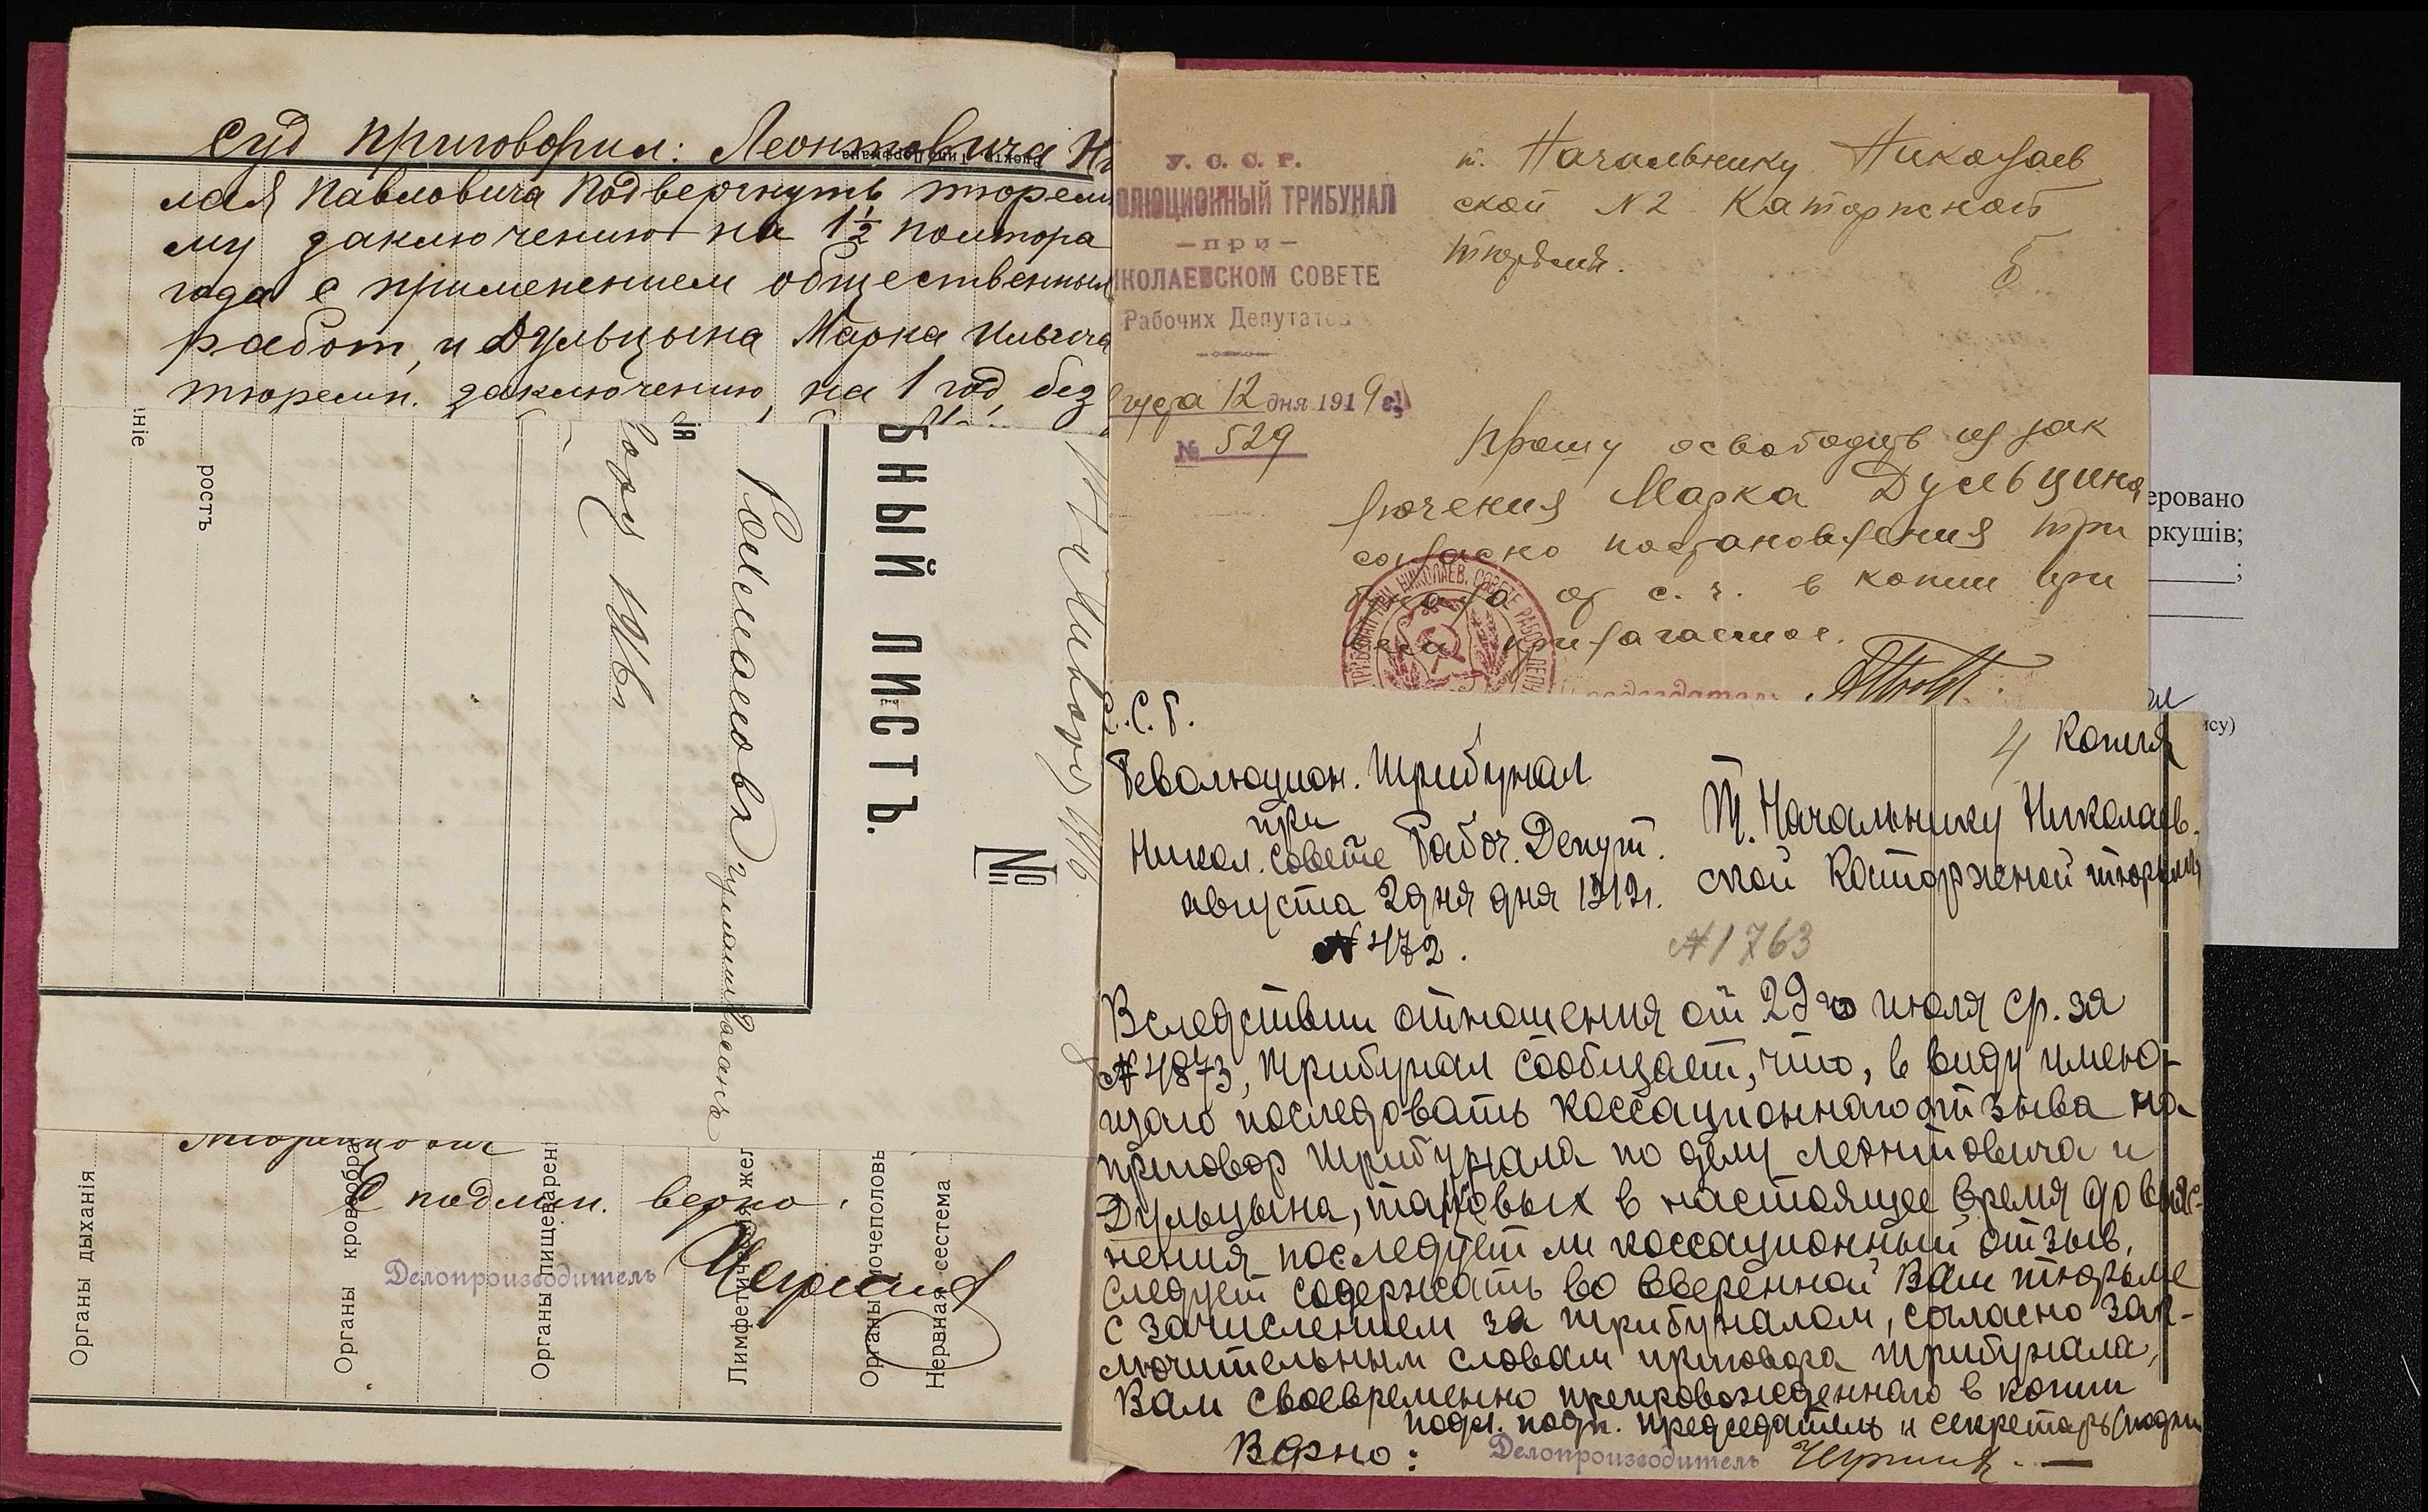 Суд приговорил: Леонтовича Ни
лая Павловича подвергнуть тюремн
му заключению на 1½ полтора
года с применением общественных
работ, и Дульцына Марка Ильича
тюремн. заключению, на 1 год, без
ніе
ростъ
ія
БНЫЙ ЛИСТЪ.
№
С подлин. верно.
Делопроизводитель
Органы дыханія
Органы кровообра
Органы пищеварен
Лимфетич жел
Органы мочеполовы
Нервная сестема
У. С. С. Р.
ОЛЮЦИОННЫЙ ТРИБУНАЛ
— при —
ИКОЛАЕВСКОМ СОВЕТЕ
Рабочих Депутатов
12 дня 1919 г.
№ 529
т. Начальнику Николаев
ской №2 Каторжной
тюрьмы.
5
Прошу освободить из зак
лючения Марка Дульцина
согласно постановления три
бунала от с. г. в копии при
сем прилагаемое.
С.С.Р.
4 Копия
Революцион. Трибунал
при
Никол. Совете Рабоч. Депут.
августа 2 дня дня 1919г.
№ 472.
Т. Начальнику Николаев.
ской Каторжной тюрьмы
№ 1763
Вследствии отношения от 29го июля ср. за
№ 4873, Трибунал сообщает, что, в виду имею-
щаго последовать коссационнаго отзыва на
приговор Трибунала по делу Леонтовича и
Дульцына, таковых в настоящее время до выяс-
нения последует ли коссационный отзыв,
следует содержать во вверенной Вам тюрьме
с зачислением за трибуналом, согласно зак-
лючительным словам приговора трибунала,
Вам своевременно препровожденнаго в копии
подл. подп. председатель и секретарь (подпи
Верно:
Делопроизводитель
еровано
ркушів;
;
ису)